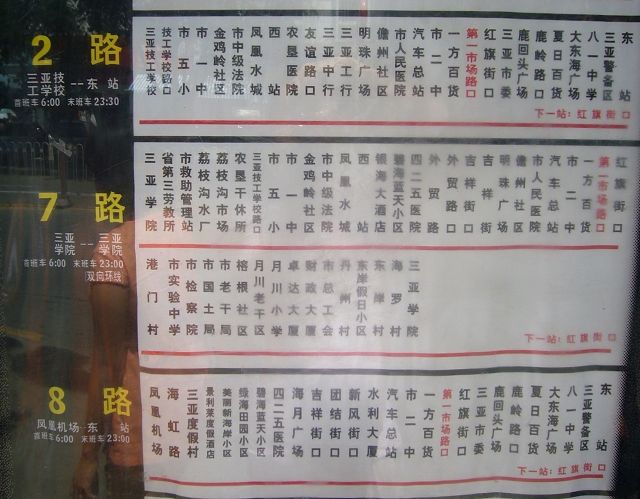 2 路
三亚技工学校 -- 东 站
首班车 6:00 末班车 23:30
三亚技工学校
技工学校路口
市五小
市一中
金鸡岭社区
市中级法院
凤凰水城
西站
农垦医院
友谊路口
三亚中行
三亚工行
明珠广场
儋州社区
市人民医院
汽车总站
市二中
一方百货
第一市场路口
红旗街口
三亚市委
鹿回头广场
鹿岭路口
夏日百货
大东海广场
八一中学
三亚警备区
东站
下一站: 红旗街口
7 路
三亚学院 -- 三亚学院
首班车 6:00 末班车 23:00
双向环线
三亚学院
省第三劳教所
市救助管理站
荔枝沟水厂
荔枝沟市场
农垦干休所
三亚技工学校路口
市五小
市一中
金鸡岭社区
市中级法院
凤凰水城
西站
银海大酒店
碧海蓝天小区
四二五医院
外贸
外贸路口
吉祥街口
吉祥街
明珠广场
儋州社区
市人民医院
汽车总站
市二中
一方百货
第一市场路口
红旗街口
港门村
市实验中学
市检察院
市国土局
市老干局
榕根社区
月川老干区
月川小学
卓达大厦
财政大厦
市总工会
丹州村
东岸假日小区
东岸村
海罗村
三亚学院
下一站: 红旗街口
8 路
凤凰机场 - 东 站
首班车 6:00 末班车 23:00
凤凰机场
海虹路
三亚度假村
景利莱度假酒店
美丽新海岸小区
绿海田园小区
碧海蓝天小区
四二五医院
海月广场
吉祥街口
团结街口
新风街口
水利大厦
汽车总站
市二中
一方百货
第一市场路口
红旗街口
三亚市委
鹿回头广场
鹿岭路口
夏日百货
大东海广场
八一中学
三亚警备区
东站
下一站: 红旗街口